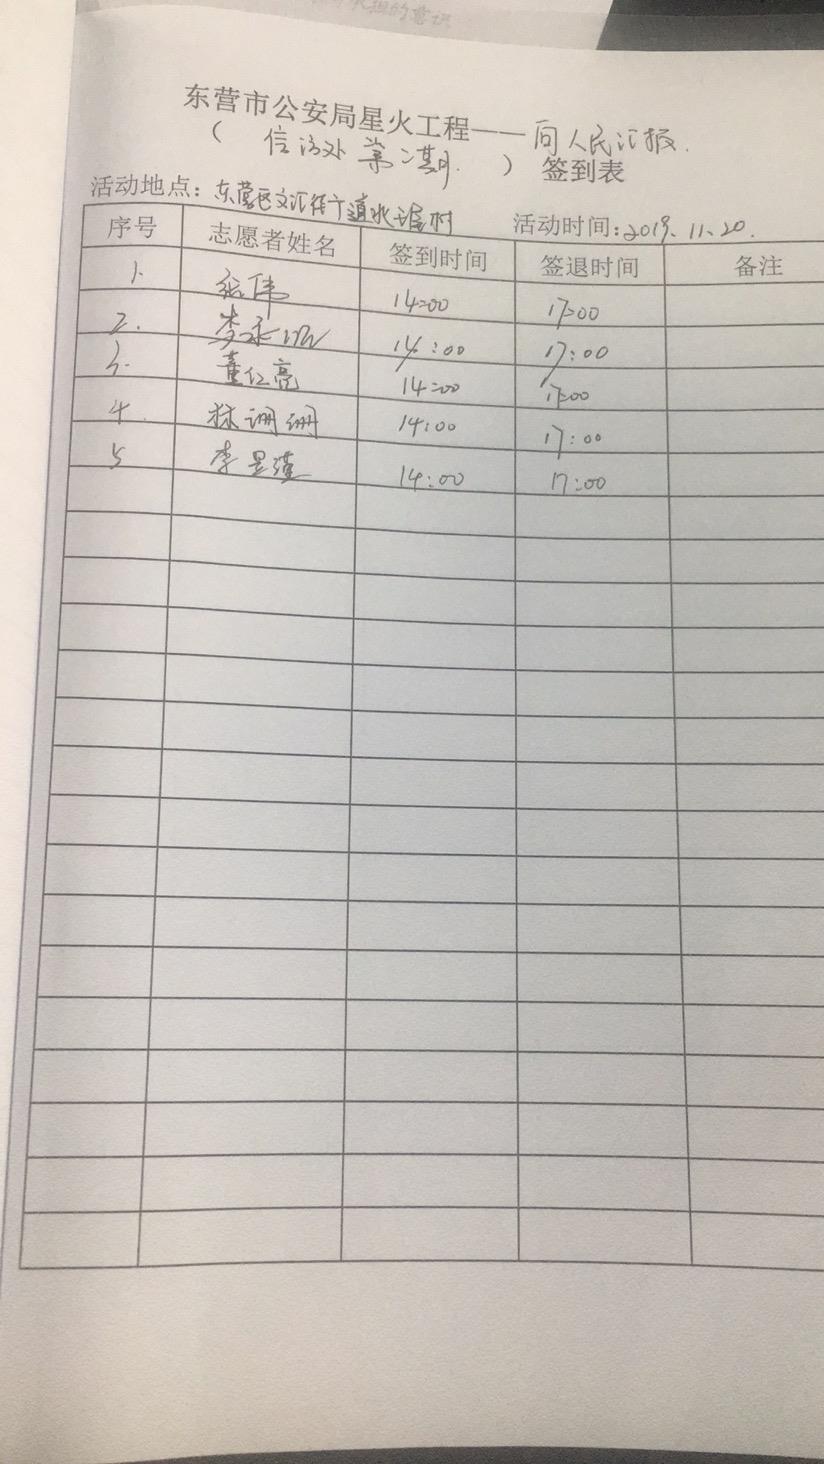 东营市公安局星火工程——向人民汇报.
（信访处 第二期.）签到表
活动地点：东营区文汇街道 活动时间：2019.11.20.
序号 志愿者姓名 签到时间 签退时间 备注
1. 张伟 14:00 17:00
2. 李 14:00 17:00
3. 董仁亮 14:00 17:00
4. 林珊珊 14:00 17:00
5 李昱瑾 14:00 17:00